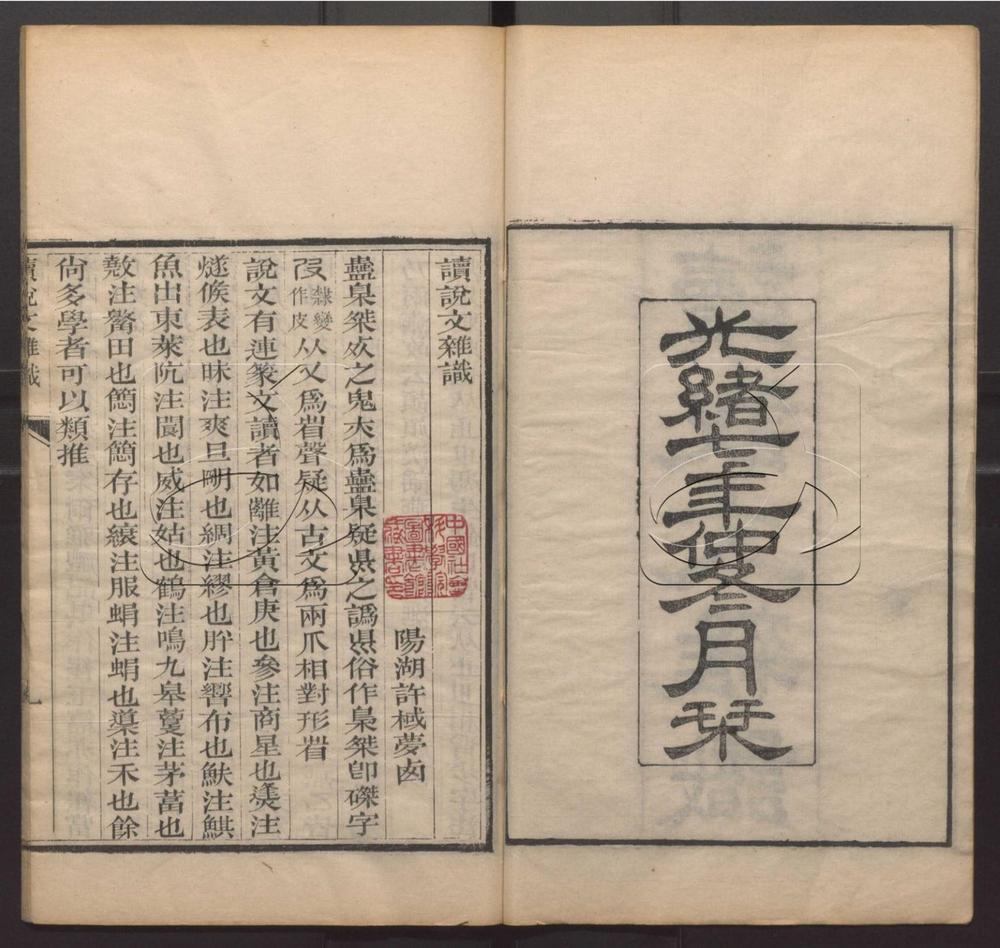 光緒七年仲冬之月栞
讀說文雜識
陽湖許棫夢西
蠱梟桀夊之鬼夳爲蠱梟疑㬎之譌㬎俗作梟桀卽磔字
𠬝隸變作皮从又爲省聲疑从古文爲兩爪相對形省
說文有連篆文讀者如離注黃倉庚也參注商星也𤎩注
燧𠊱表也昧注爽旦朙也綢注繆也肸注響布也魼注鯕
魚出東萊阬注閬也威注姑也鶴注鳴九皋藑注茅葍也
敫注嚳田也簡注簡存也𧞫注服蜎注蜎也𥠖注禾也餘
尙多學者可以類推
讀說文雜識
中國社會
科學院
圖書館
藏書印